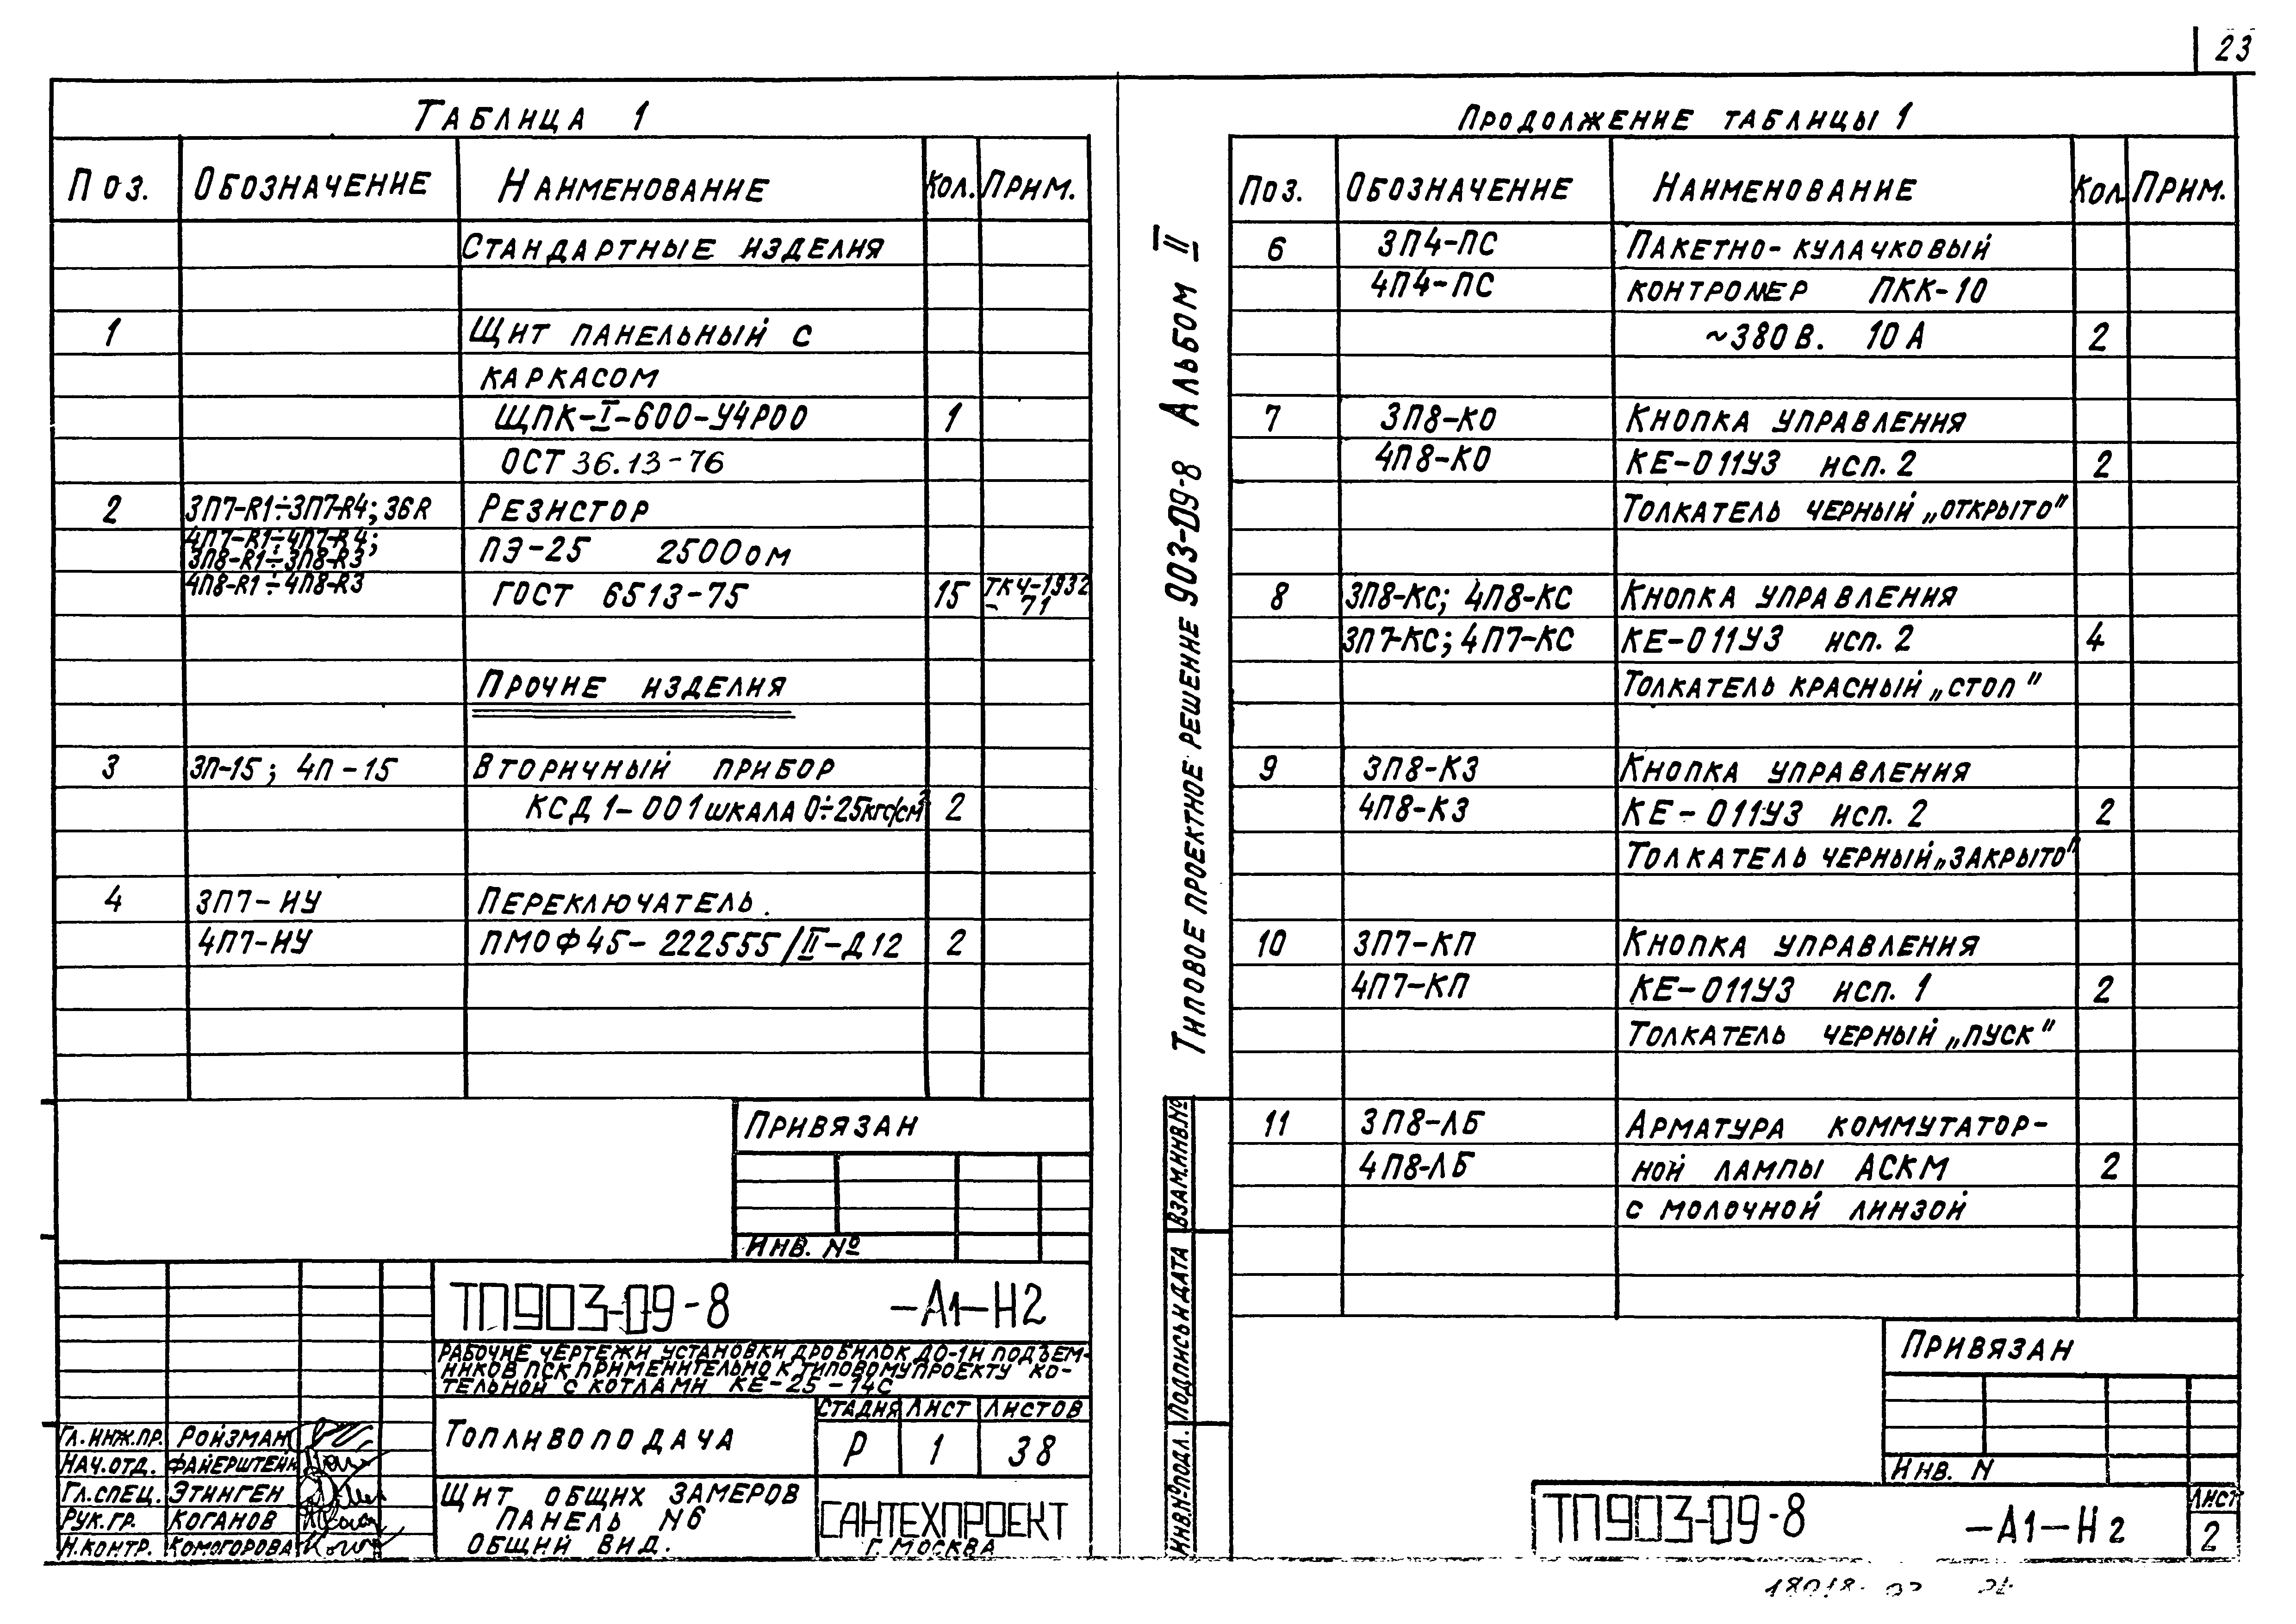 23
Таблица 1
Поз. Обозначение Наименование Кол. Прим.
Стандартные изделия
1 Щит панельный с
каркасом
ЩПК-I-600-У4Р00 1
ОСТ 36.13-76
2 3П7-R1÷3П7-R4; 36R Резистор
4П7-R1÷4П7-R4;
3П8-R1÷3П8-R3 ПЭ-25 2500ом
4П8-R1÷4П8-R3 ГОСТ 6513-75 15 ТКЧ-1932
- 71
Прочие изделия
3 3П-15; 4П-15 Вторичный прибор
КСД1-001 шкала 0÷25кгс/см² 2
4 3П7-ИУ Переключатель.
4П7-ИУ ПМОФ45-222555/II-Д12 2
Привязан
Инв. №
ТП903-09-8 -А1-Н2
Рабочие чертежи установки дробилок ДО-1и подъем-
ников ПСК применительно к типовому проекту ко-
тельной с котлами КЕ-25-14С
Топливоподача
Стадия Лист Листов
Р 1 38
Щит общих замеров
панель №6
общий вид.
САНТЕХПРОЕКТ
г. Москва
Гл.инж.пр. Ройзман
Нач.отд. Файерштейн
Гл.спец. Этинген
Рук.гр. Коганов
Н.контр. Комогорова
Типовое проектное решение 903-09-8 Альбом II
Взам.инв.№
Подпись и дата
Инв.№подл.
Продолжение таблицы 1
Поз. Обозначение Наименование Кол. Прим.
6 3П4-ПС Пакетно-кулачковый
4П4-ПС контролер ПКК-10
~380В. 10А 2
7 3П8-КО Кнопка управления
4П8-КО КЕ-011У3 исп. 2 2
Толкатель черный „открыто"
8 3П8-КС; 4П8-КС Кнопка управления
3П7-КС; 4П7-КС КЕ-011У3 исп. 2 4
Толкатель красный „стоп"
9 3П8-КЗ Кнопка управления
4П8-КЗ КЕ-011У3 исп. 2 2
Толкатель черный „закрыто"
10 3П7-КП Кнопка управления
4П7-КП КЕ-011У3 исп. 1 2
Толкатель черный „пуск"
11 3П8-ЛБ Арматура коммутатор-
4П8-ЛБ ной лампы АСКМ 2
с молочной линзой
Привязан
Инв. N
ТП903-09-8 -А1-Н2
Лист
2